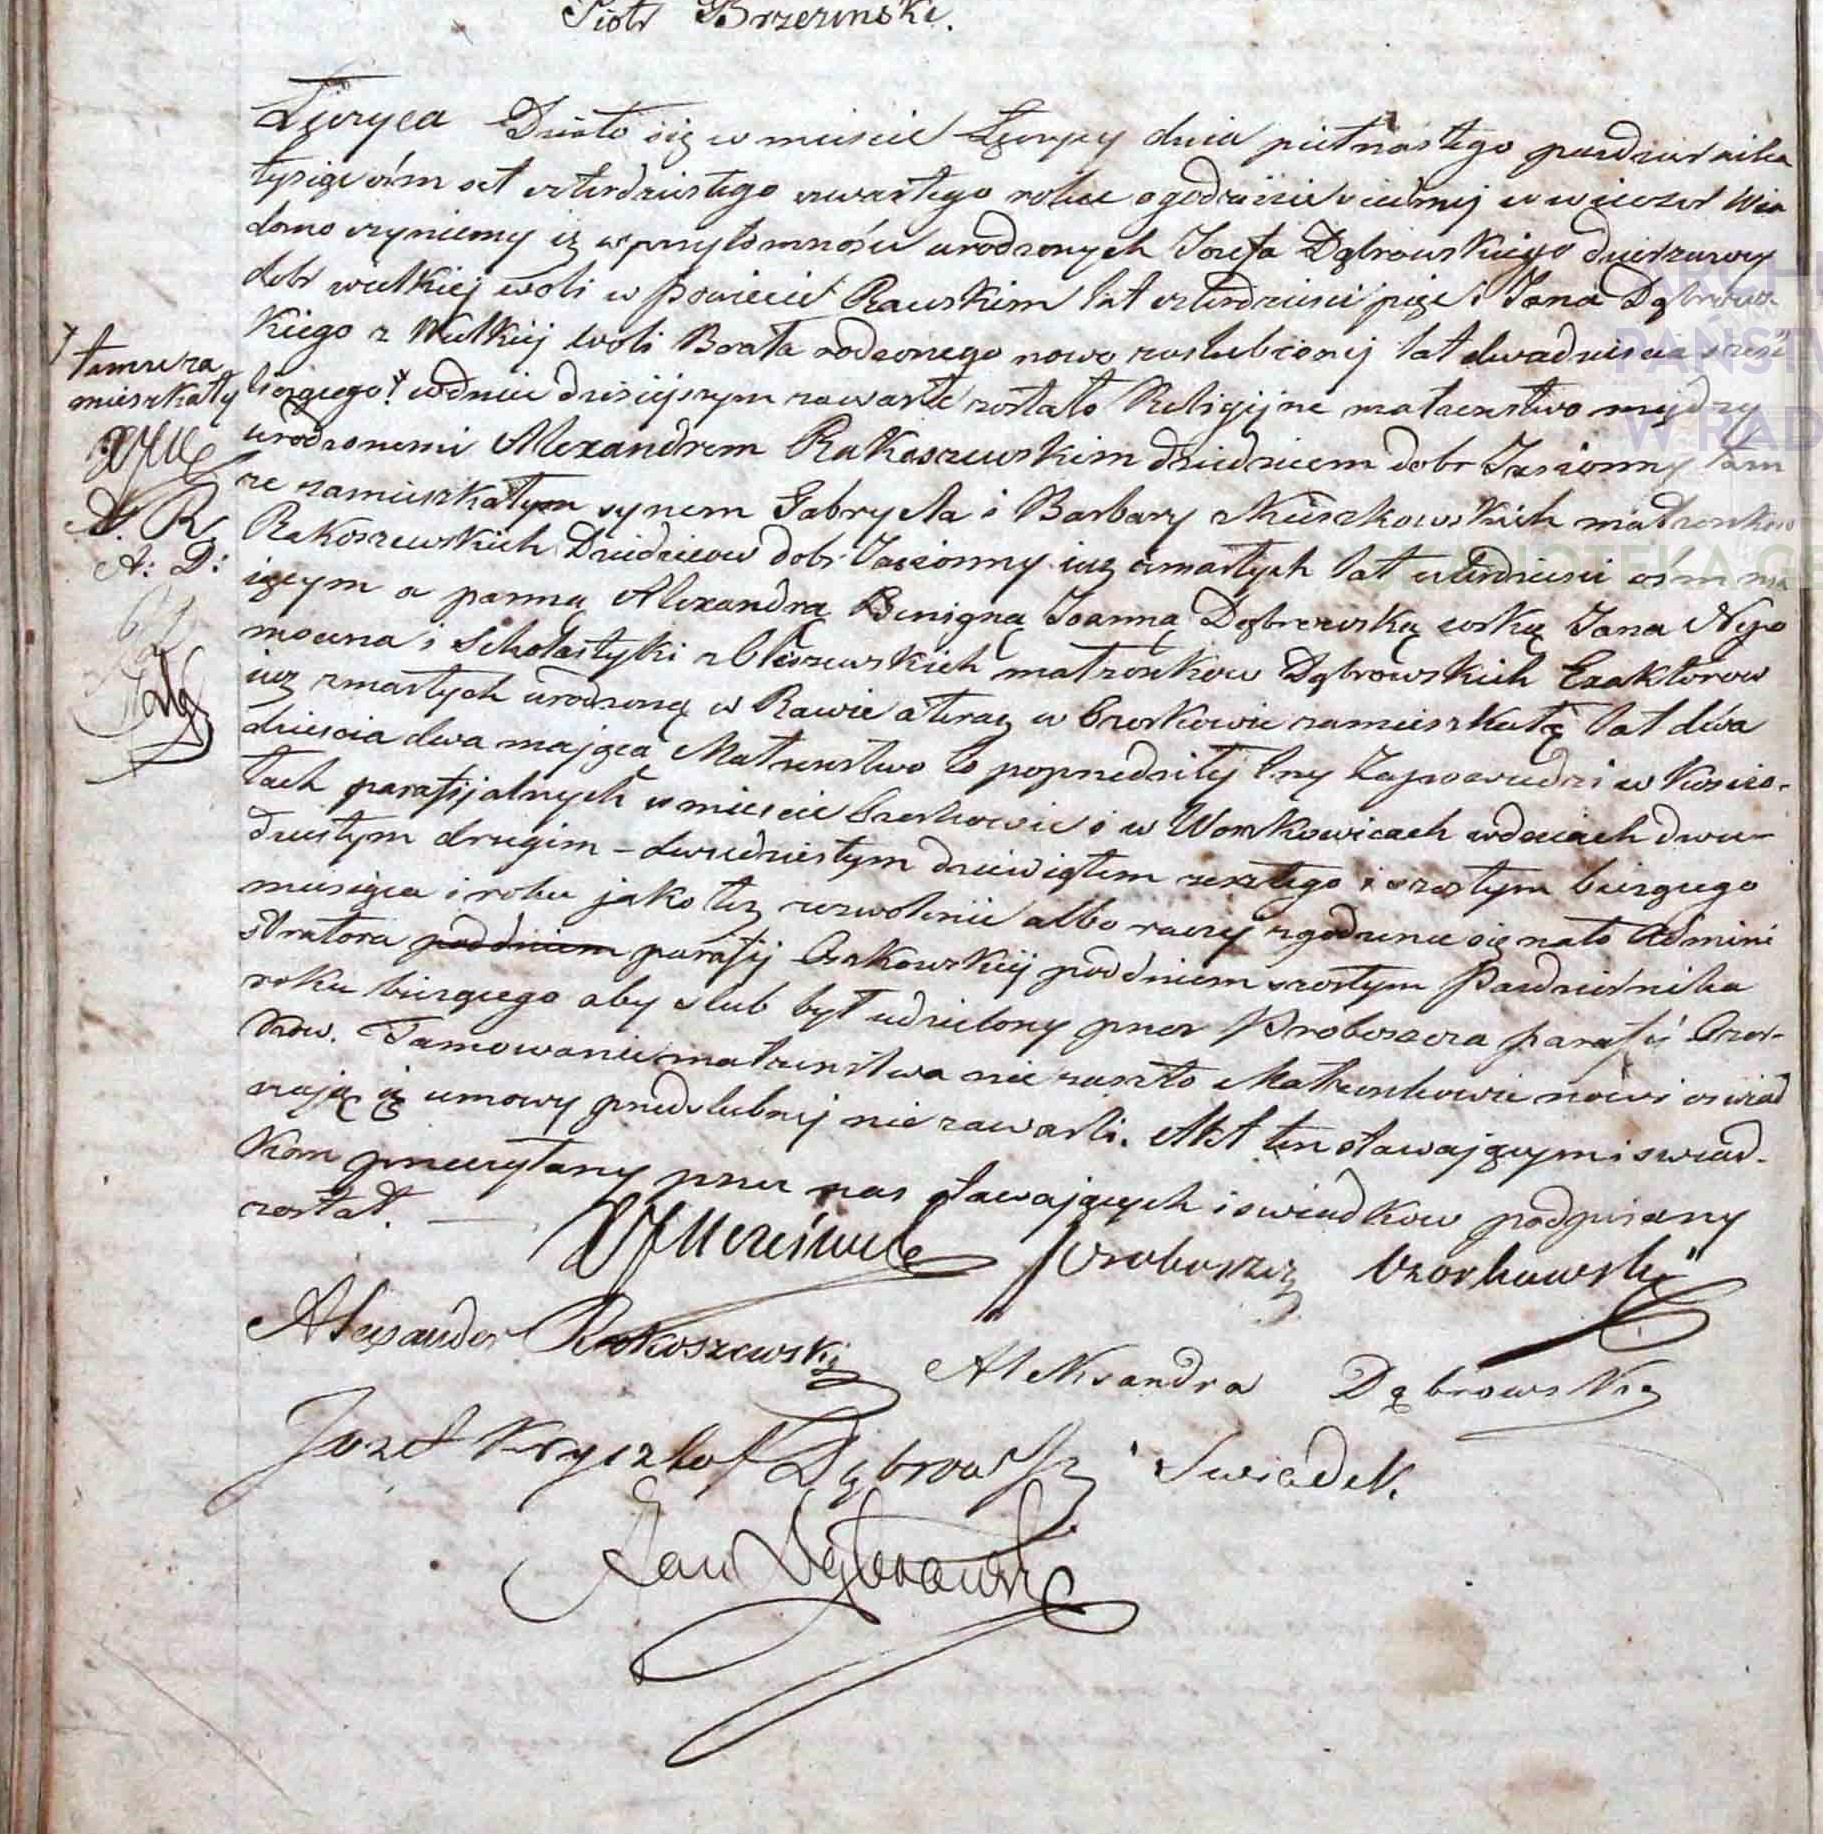 Piotr Brzezinski.
Łęczyca Działo się w mieście Łęczycy dnia piętnastego pazdziernika
tysiąc ośm set czterdziestego czwartego roku o godzinie siedmej w wieczor Wia
domo czyniemy iz w przytomnosci urodzonych Jozefa Dąbrowskiego dzierzawcy
dobr wielkiej woli w Powiecie Rawskim lat czterdziesci pięc i Jana Dąbrows-
kiego z Wielkiej woli Brata rodzonego nowo zaslubionej lat dwadziescia szesc
liczącego w dniu dzisiejszym zawarte zostało Religijne małzenstwo między
tamze za
mieszkały
A. R.
A: D:
urodzonemi Alexandrem Rakoszewskim dziedzicem dobr Jasionny tam
ze zamieszkałym synem Gabryela i Barbary z małzonkow
Rakoszewskich Dziedzicow dobr Jasionny iuz zmarłych lat czterdziesci ośm ma
iącym a panną Alexandrą Benigną Joanną Dąbrowską corką Jana Nepo
mocena i Scholastyki z małzonkow Dąbrowskich Exaktorow
iuz zmarłych urodzoną w Rawie a teraz w Ozorkowie zamieszkałą lat dwa
dziescia dwa mającą Małzenstwo to poprzedziły trzy Zapowiedzi w Koscio-
łach parafijalnych w miescie Ozorkowie i w w dniach dwu-
dziestym drugim - dwudziestym dziewiątem zeszłego i szostym biezącego
miesiąca i roku jako tez zezwolenie albo raczej zgodzenie się na to Admini
stratora pod dniem parafij Ozorkowskiej pod dniem szostym Pazdziernika
roku biezącego aby slub był udzielony przez Proboszcza parafii Ozor-
kow. Tamowanie małzenstwa nie zaszło Małzonkowie nowi oswiad
czają iz umowy przedslubnej nie zawarli. Akt ten stawającym i swiad-
kom przeczytany przez nas stawających i swiadkow podpisany
został.
Proboszcz Ozorkowski
Alexander Rakoszewski Aleksandra Dąbrowska
Jozef Krysztof Dąbrowski Swiadek.
Jan Dąbrowski